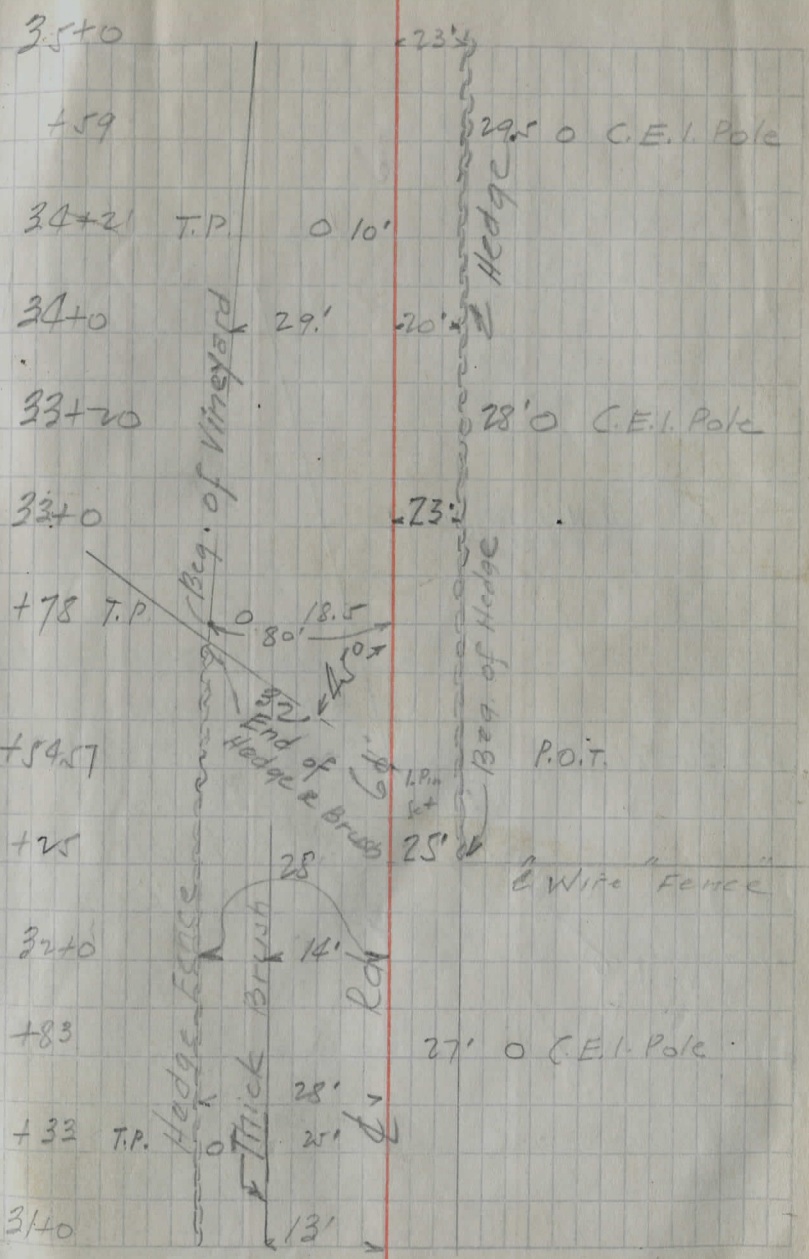 35+0 23'
+59 29.5 O C.E.I. Pole
34+21 T.P. O 10'
Hedge
34+0 29.' 20'
33+20 28' O C.E.I. Pole
33+0 23'
Beg. of Vineyard
+78 T.P. O 18.5
80'
45°
Beg. of Hedge
End of
Hedge & Brush
+54.57 P.O.T.
I. Pin
Set
+25 25'
28
℄ Wire "Fence"
32+0 14'
Rd
Hedge Fence
Thick Brush
+83 27' O C.E.I. Pole
28'
+33 T.P. O 25' ℄
31+0 13'